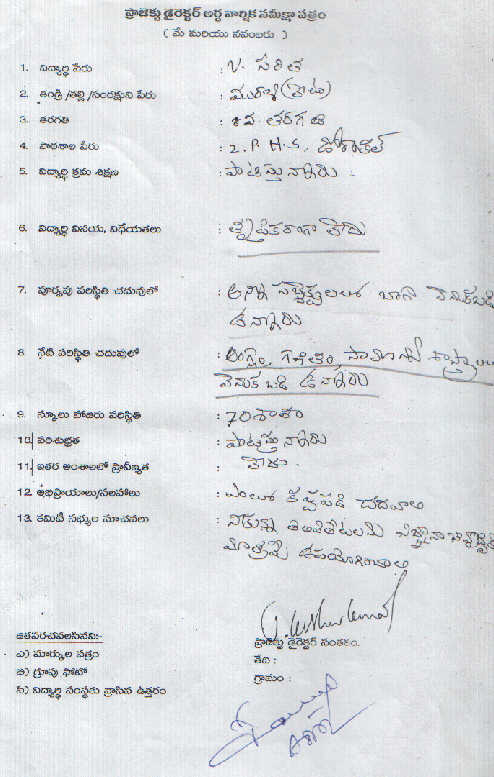 ప్రాజెక్టు డైరెక్టర్ అర్ధ వార్షిక సమీక్షా పత్రం
( మే మరియు నవంబరు )
1. విద్యార్థి పేరు : V. సరిత
2. తండ్రి/తల్లి/సంరక్షుని పేరు : మురళి (రాజు)
3. తరగతి : 8వ తరగతి
4. పాఠశాల పేరు : Z.P.H.S,
5. విద్యార్థి క్రమ శిక్షణ : పాటిస్తున్నారు.
6. విద్యార్థి వినయ, విధేయతలు : తృప్తికరంగా లేదు
7. పూర్వపు పరిస్థితి చదువులో : అన్ని సబ్జెక్టులలో బాగా వెనుకబడి
ఉన్నారు
8. నేటి పరిస్థితి చదువులో : ఇంగ్లీషు గణితం సామాన్య శాస్త్రాలలో
వెనుకబడి ఉన్నారు
9. స్కూలు హాజరు పరిస్థితి : 70 శాతం
10. పరిశుభ్రత : పాటిస్తున్నారు
11. ఇతర అంశాలలో ప్రావీణ్యత : లేదు.
12. అభిప్రాయాలు/సలహాలు : కష్టపడి చదవాలి
13. కమిటీ సభ్యుల సూచనలు : నీకున్న తెలివితేటలని
ఉపయోగించాలి
జతపరచవలసినవి:-
ఎ) మార్కుల పత్రం
బి) గ్రూపు ఫోటో
సి) విద్యార్థి సంస్థకు వ్రాసిన ఉత్తరం
ప్రాజెక్టు డైరెక్టర్ సంతకం.
తేది :
గ్రామం :